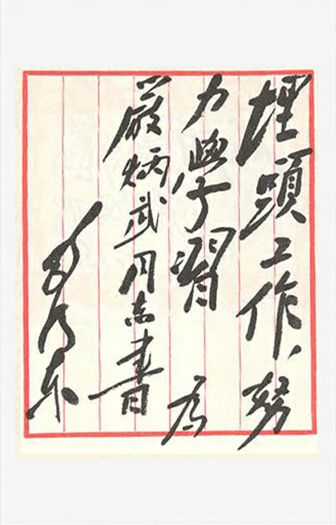 埋頭工作、努
力學習 為
嚴炳武同志書
毛澤东